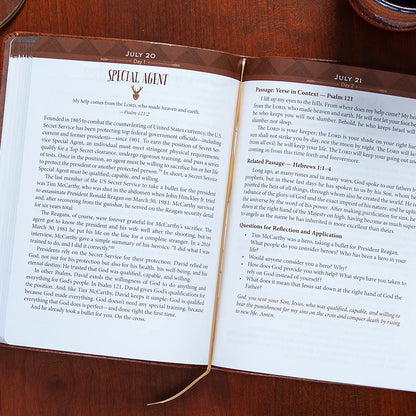 JULY 20
Day 1
SPECIAL AGENT
My help comes from the LORD, who made heaven and earth.
—Psalm 121:2
Founded in 1865 to combat the counterfeiting of United States currency, the U.S.
Secret Service has been protecting top federal government officials—including
current and former presidents—since 1901. To earn the position of Secret Ser-
vice Special Agent, an individual must meet stringent physical requirements,
qualify for a Top Secret clearance, undergo rigorous training, and pass a series
of tests. Once in the position, an agent must be willing to sacrifice his or her life
to protect the president or another protected person. In short, a Secret Service
Special Agent must be qualified, capable, and willing.
The last member of the US Secret Service to take a bullet for the president
was Tim McCarthy, who was shot in the abdomen when John Hinckley Jr. tried
to assassinate President Ronald Reagan on March 30, 1981. McCarthy survived
and, after recovering from the gunshot, he served on the Reagan security detail
for six years total.
The Reagans, of course, were forever grateful for McCarthy's sacrifice. The
agent got to know the president and his wife well after the shooting, but on
March 30, 1981 he put his life on the line for a complete stranger. In a 2016
interview, McCarthy gave a simple summary of his heroics: "I did what I was
trained to do, and I did it correctly."
Presidents rely on the Secret Service for their protection. David relied on
God, not just for his protection but also for his health, his well-being, and his
eternal destiny. He trusted that God was qualified, capable, and willing.
In other Psalms, David extols the willingness of God to do anything and
everything for God's people. In Psalm 121, David gives God's qualifications for
the position. And, like Tim McCarthy, David keeps it simple: God is qualified
because God made everything. God doesn't need any special training, because
everything that God does is perfect—and done right the first time.
And he already took a bullet for you. On the cross.
JULY 21
Day 2
Passage: Verse in Context — Psalm 121
I lift up my eyes to the hills. From where does my help come? My help
from the LORD, who made heaven and earth. He will not let your foot
he who keeps you will not slumber. Behold, he who keeps Israel will
slumber nor sleep.
The LORD is your keeper; the LORD is your shade on your right hand.
sun shall not strike you by day, nor the moon by night. The LORD will keep
from all evil; he will keep your life. The LORD will keep your going out and
coming in from this time forth and forevermore.
Related Passage — Hebrews 1:1–4
Long ago, at many times and in many ways, God spoke to our fathers by
prophets, but in these last days he has spoken to us by his Son, whom he
pointed the heir of all things, through whom also he created the world. He is
radiance of the glory of God and the exact imprint of his nature, and he upholds
the universe by the word of his power. After making purification for sins, he
down at the right hand of the Majesty on high, having become as much superior
to angels as the name he has inherited is more excellent than theirs.
Questions for Reflection and Application
• Tim McCarthy was a hero, taking a bullet for President Reagan.
What people do you consider heroes? Who has been a hero in your
life?
• Would anyone consider you a hero? Why?
• How does God provide you with help? What steps have you taken to
rely on God instead of yourself?
• What does it mean that Jesus sat down at the right hand of God the
Father?
God, you sent your Son, Jesus, who was qualified, capable, and willing to
bear the punishment for my sins on the cross and conquer death by rising
to new life. Amen.